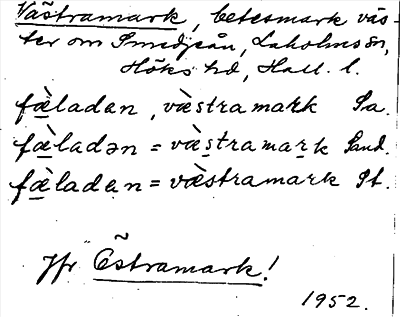 Västramark, betesmark väs-
ter om Smedjeån, Laholms sn,
Höks hd, Hall. l.
fæ̀ladən, væ̀stramark Sa.
fæ̀ladən = væ̀stramark Sand.
fæ̀ladən = væ̀stramark St.
Jfr Östramark!
1952.